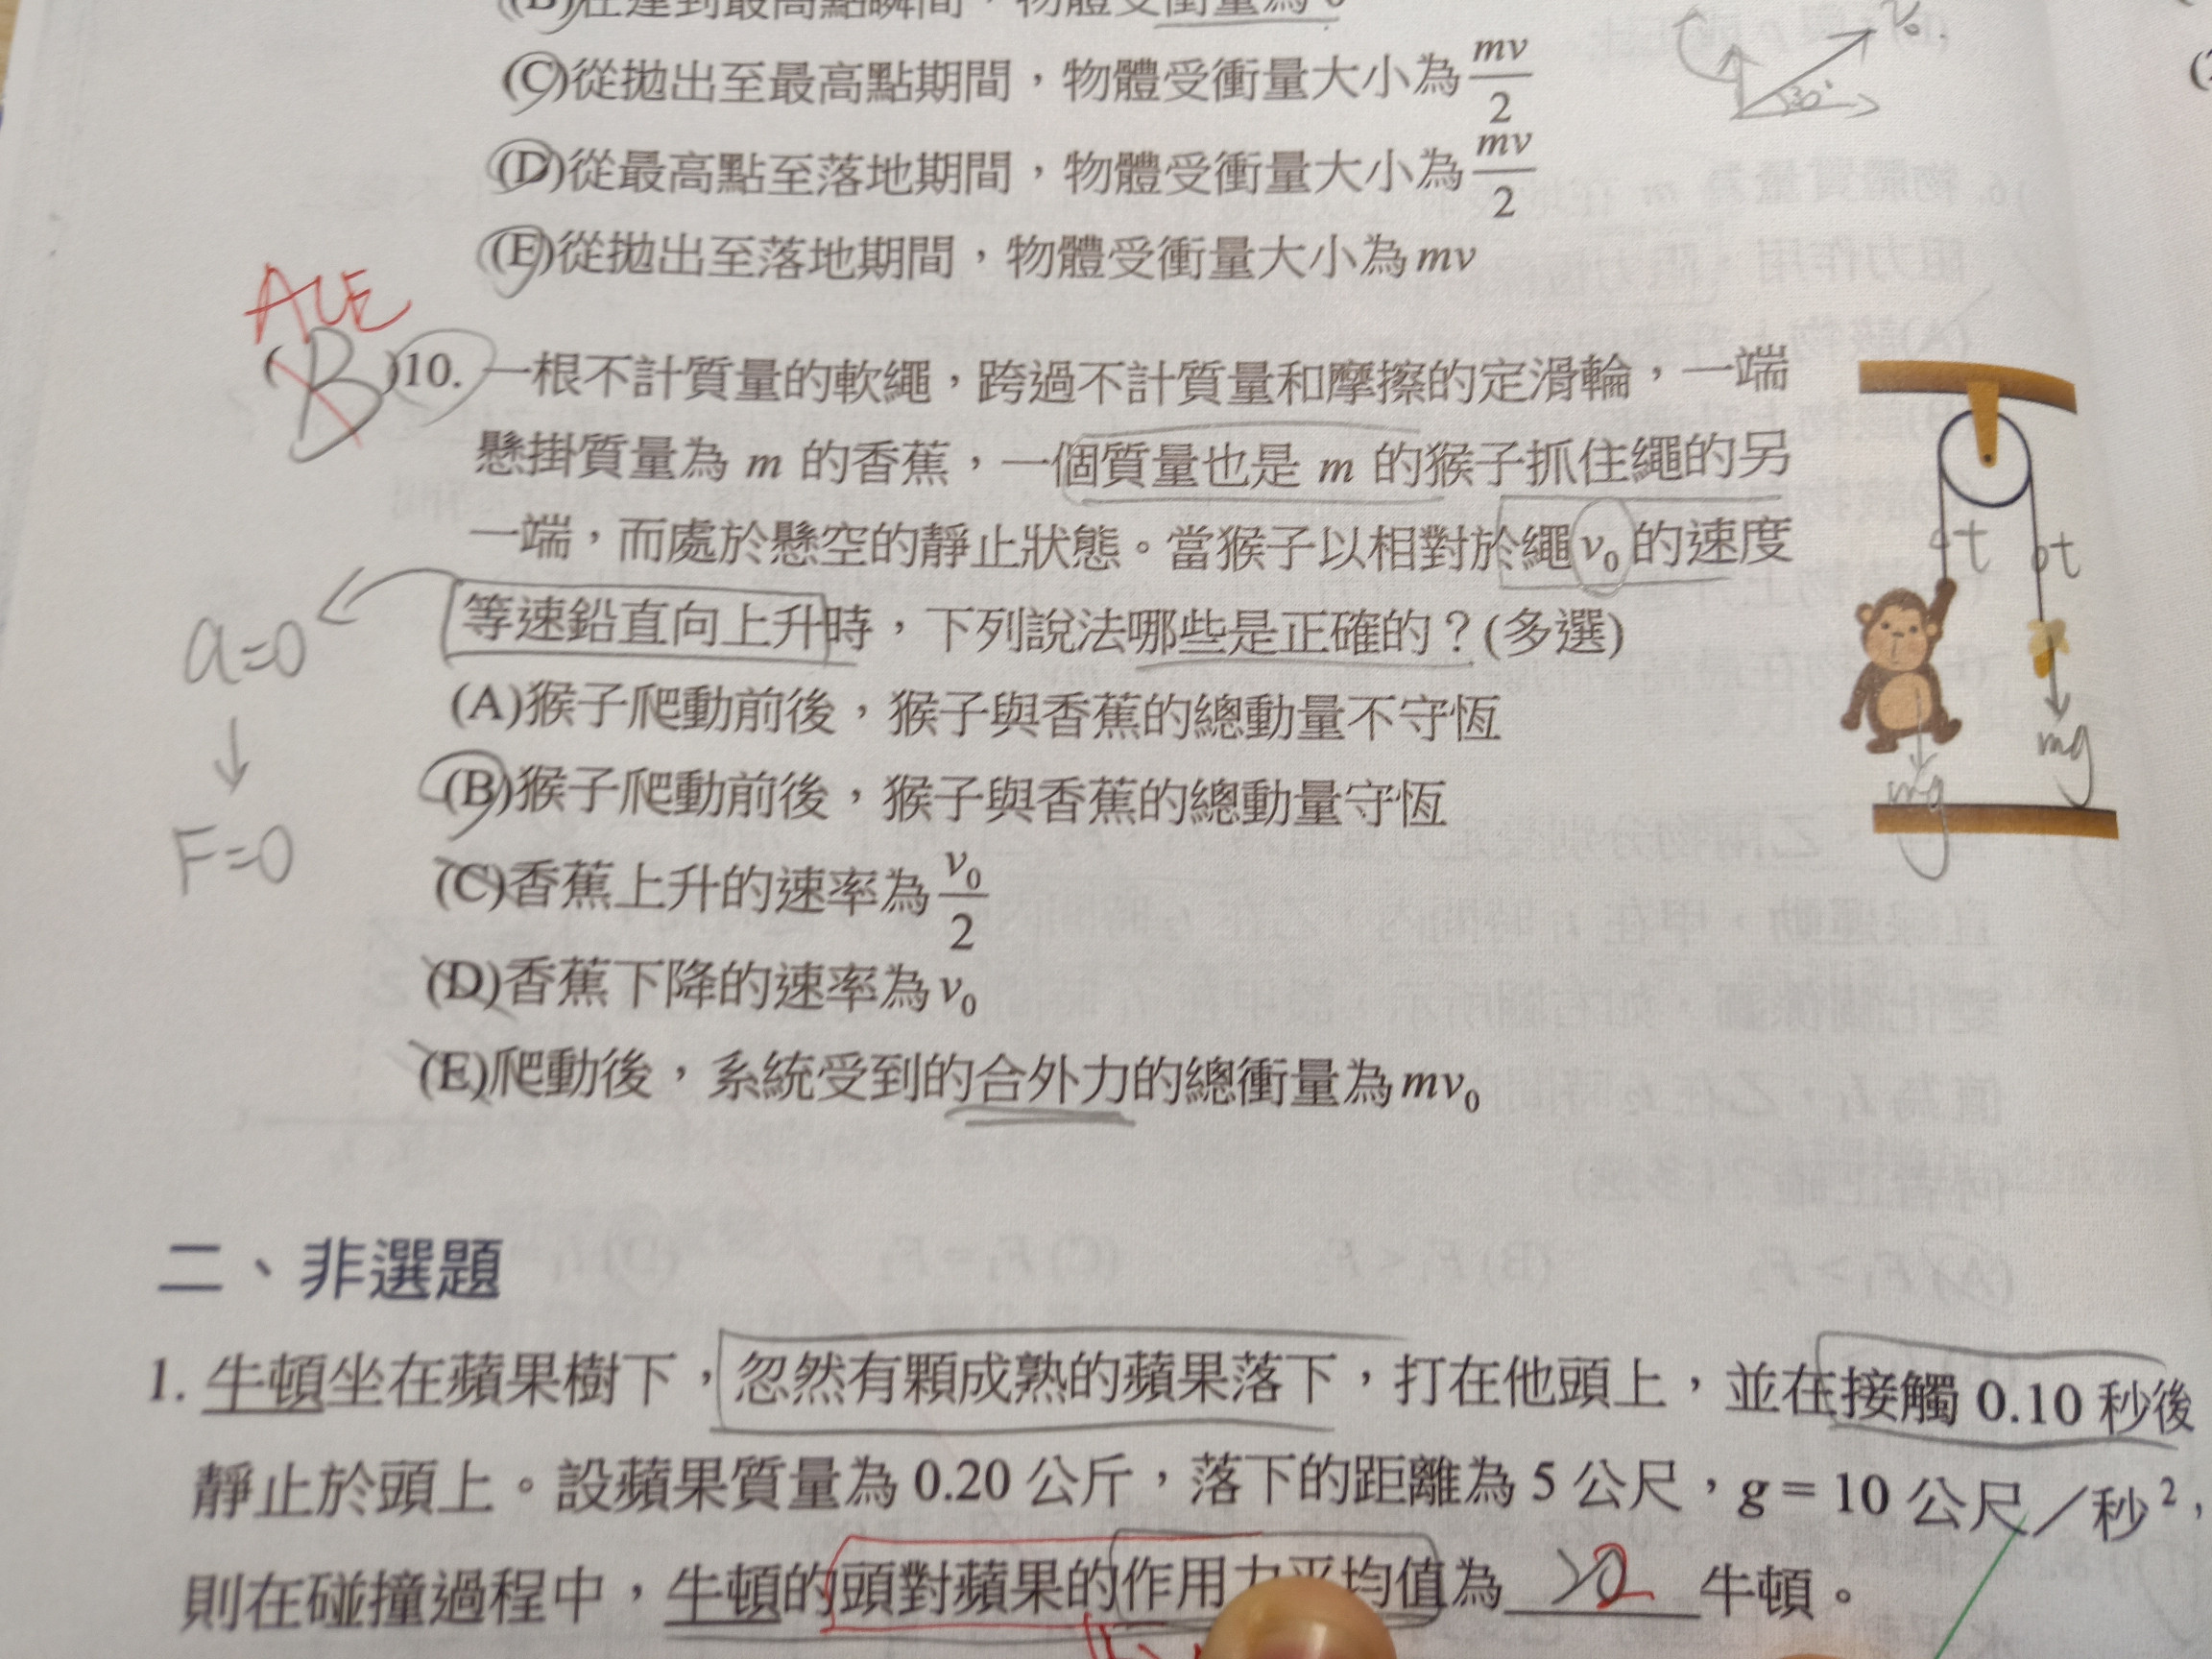 (B)在達到最高點瞬間，物體受衝量為 0
(C)從拋出至最高點期間，物體受衝量大小為 mv/2
(D)從最高點至落地期間，物體受衝量大小為 mv/2
(E)從拋出至落地期間，物體受衝量大小為 mv
v₀.
30°
ACE
( B )10. 一根不計質量的軟繩，跨過不計質量和摩擦的定滑輪，一端
懸掛質量為 m 的香蕉，一個質量也是 m 的猴子抓住繩的另
一端，而處於懸空的靜止狀態。當猴子以相對於繩 v₀ 的速度
等速鉛直向上升時，下列說法哪些是正確的？(多選)
a=0
F=0
t
t
mg
mg
(A)猴子爬動前後，猴子與香蕉的總動量不守恆
(B)猴子爬動前後，猴子與香蕉的總動量守恆
(C)香蕉上升的速率為 v₀/2
(D)香蕉下降的速率為 v₀
(E)爬動後，系統受到的合外力的總衝量為 mv₀
二、非選題
1. 牛頓坐在蘋果樹下，忽然有顆成熟的蘋果落下，打在他頭上，並在接觸 0.10 秒後
靜止於頭上。設蘋果質量為 0.20 公斤，落下的距離為 5 公尺，g = 10 公尺／秒²，
則在碰撞過程中，牛頓的頭對蘋果的作用力平均值為 牛頓。